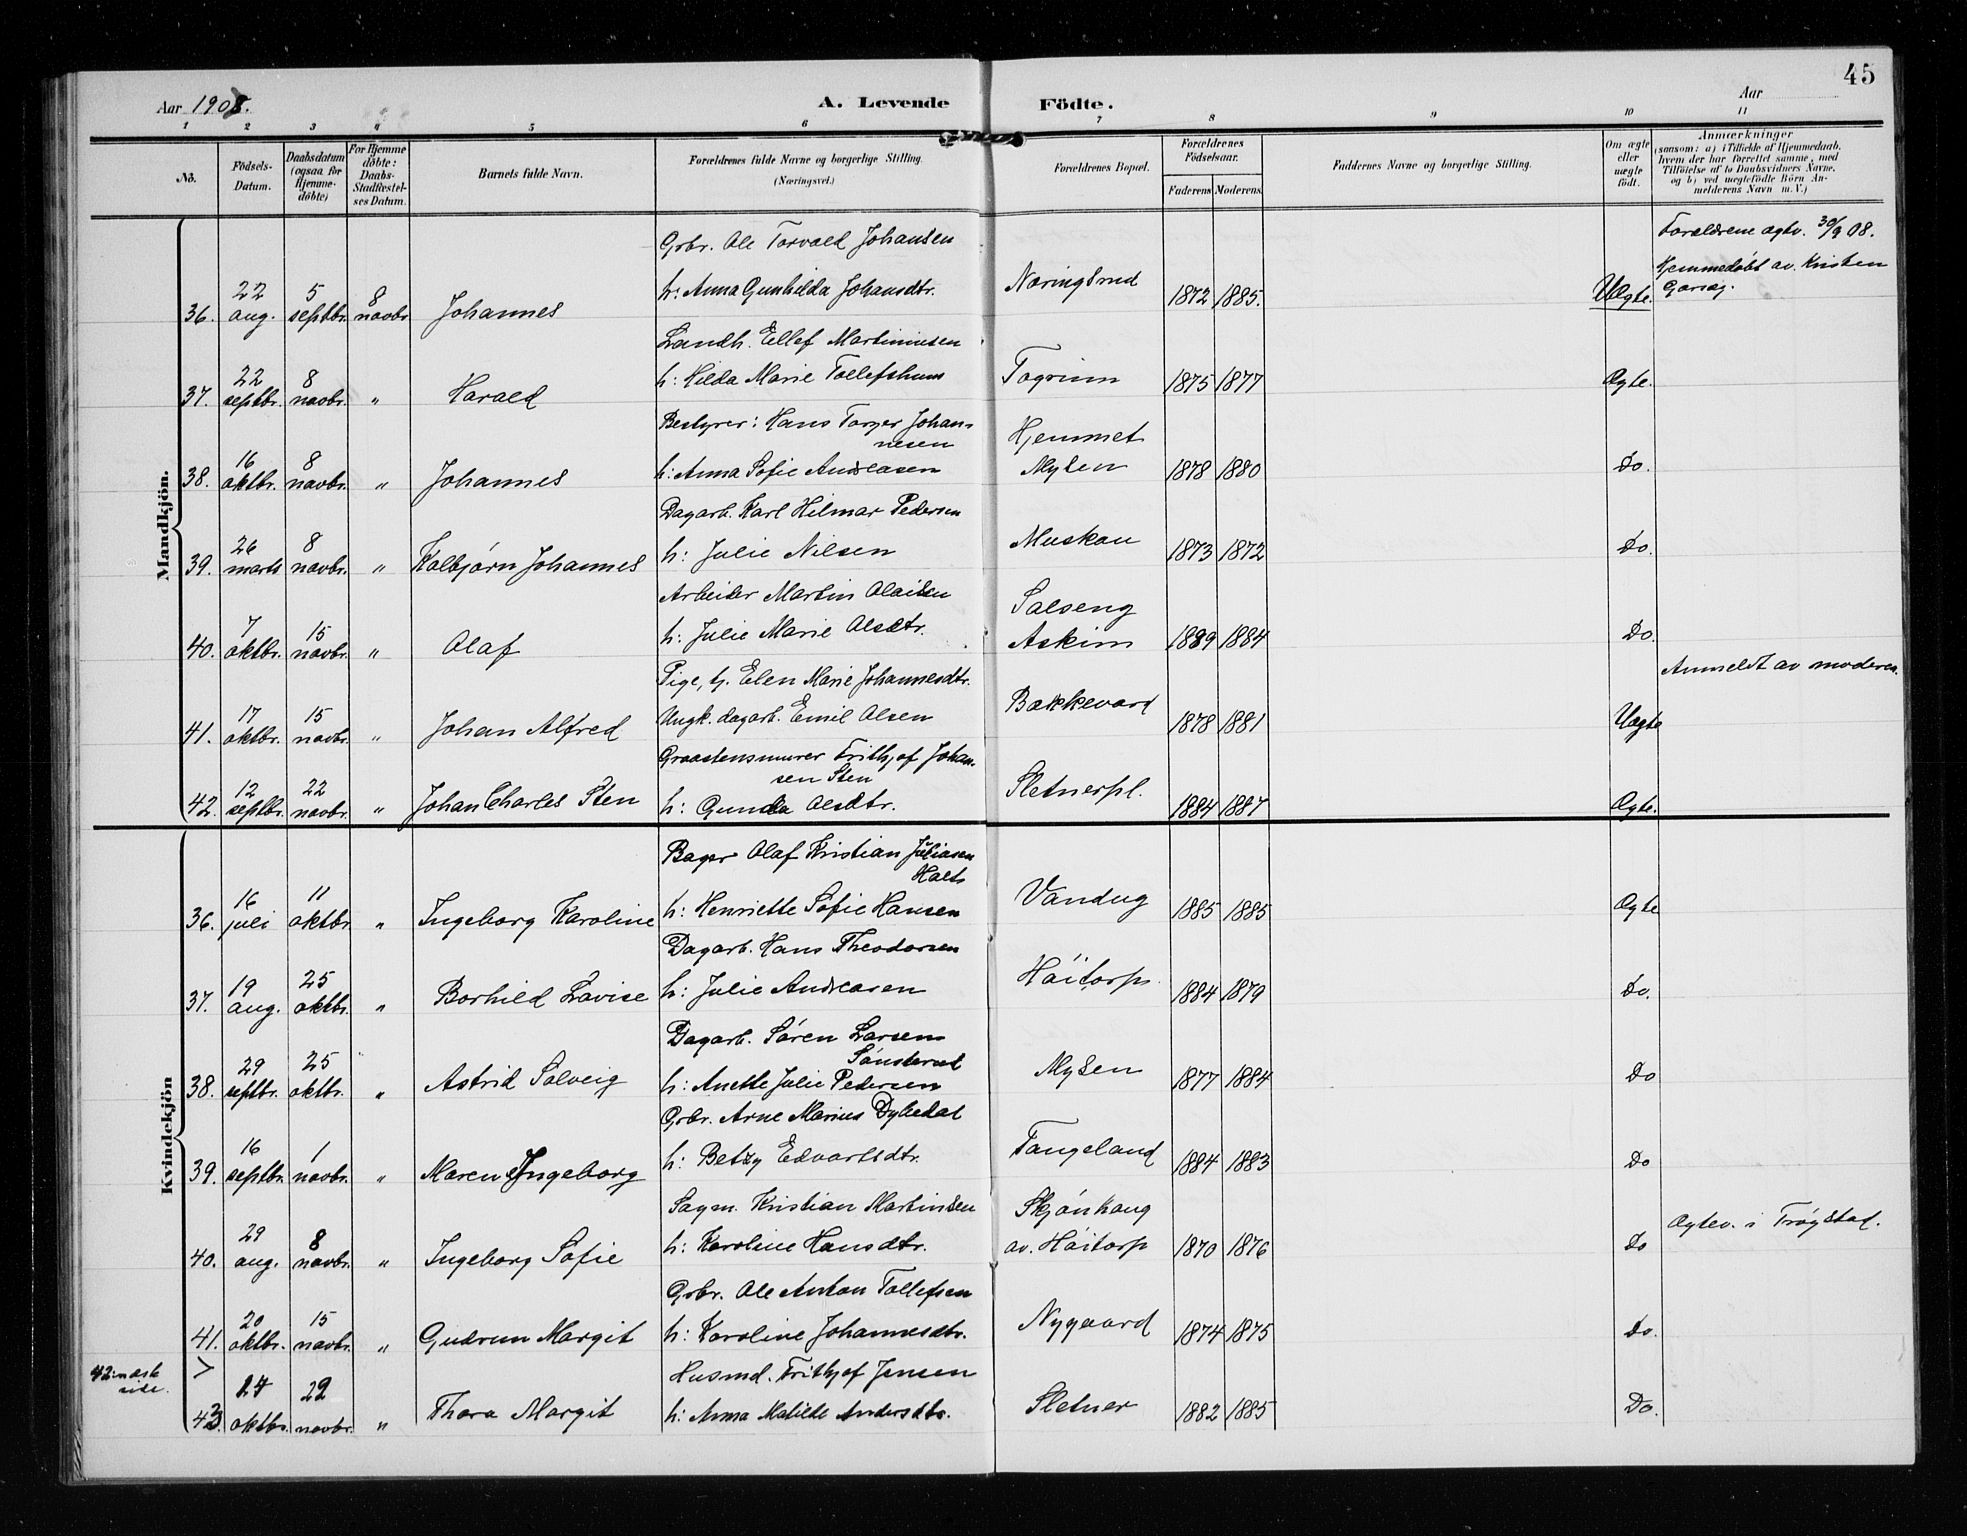 45
Aar 1908. A. Levende Födte. Aar
1 2 3 4 5 6 7 8 9 10 11
No. Födsels-Datum. Daabsdatum (ogsaa for Hjemme-döbte) For Hjemme döbte: Daabs-Stadfæstel-ses Datum. Barnets fulde Navn. Forældrenes fulde Navne og borgerlige Stilling. (Næringsvei.) Forældrenes Bopæl. Forældrenes Födselsaar. Faderens Moderens. Faddernes Navne og borgerlige Stilling. Om ægte eller uægte födt. Anmærkninger (saasom: a) i Tilfælde af Hjemmedaab, hvem der har forrettet samme, med Tilföielse af to Daabsvidners Navne, og b) ved uægtefödte Börn An-melderens Navn m. V.)
Mandkjön.
Gbr. Ole Torvald Johansen Forældrene ægtev. 30/9 08.
36. 22 aug. 5 septbr. 8 novbr. Johannes h: Anna Gunhilda Johansdtr. Næringsrud 1872 1885. Uægte. Hjemmedöbt av. Kristen
Landh. Ellef Martiniusen
37. 22 septbr. 8 novbr. " Harald h: Hilda Marie Tollefshun Togrim 1875 1877 Ægte.
Bestyrer: Hans Torger Johan-
nesen Hjemmet
38. 16 oktbr. 8 novbr. " Johannes h: Anna Sofie Andreasen Mysen 1878 1880 Do.
Dagarb. Karl Hilmar Pedersen
39. 26 marts 8 novbr. " Kolbjørn Johannes h: Julie Nilsen Muskau 1873 1872 Do.
Arbeider Martin Olaisen Solseng
40. 7 oktbr. 15 novbr. " Olaf h: Julie Marie Olsdtr. Askim 1889 1884 Do.
Pige, tj. Elen Marie Johannesdtr. Anmeldt av moderen.
41. 17 oktbr. 15 novbr. " Johan Alfred Ungk. dagarb. Emil Olsen Bakkevard 1878 1881 Uægte
Graastensmurer Frithjof Johan-
sen Sten
42. 12 septbr. 22 novbr. " Johan Charles Sten h: Gunda Olsdtr. Sletnerpl. 1884 1887 Ægte.
Kvindekjön
Bager Olaf Kristian Juliasen
Holts
36. 16 juli 11 oktbr. " Ingeborg Karoline h: Henriette Sofie Hansen Vandug 1885 1885 Ægte
Dagarb. Hans Theodorsen
37. 19 aug. 25 oktbr. " Borhild Lovise h: Julie Andreasen Höitorp. 1884 1879 Do.
Dagarb. Sören Larsen
Sönsterud
38. 29 septbr. 25 oktbr. " Astrid Solveig h: Anette Julie Pedersen Mysen 1877 1884 Do
Gbr. Arne Marius Dybedal
39. 16 septbr. 1 novbr. " Maren Ingeborg h: Betzy Edvartsdtr. Tangeland 1884 1883 Do
Sagm. Kristian Martinsen Skjönhaug
40. 29 aug. 8 novbr. " Ingeborg Sofie h: Karoline Hansdtr. av. Höitorp 1870 1876 Do Ægtev. i Trøgstad.
Gbr. Ole Anton Tollefsen
41. 20 oktbr. 15 novbr. " Gudrun Margit h: Karoline Johannesdtr. Nygaard 1874 1875 Do.
42: næste side. >
Husmd. Frithjof Jensen
43 27 oktbr. 22 novbr. " Thora Margit h: Anna Matilde Andersdtr. Sletner 1882 1885 Do.